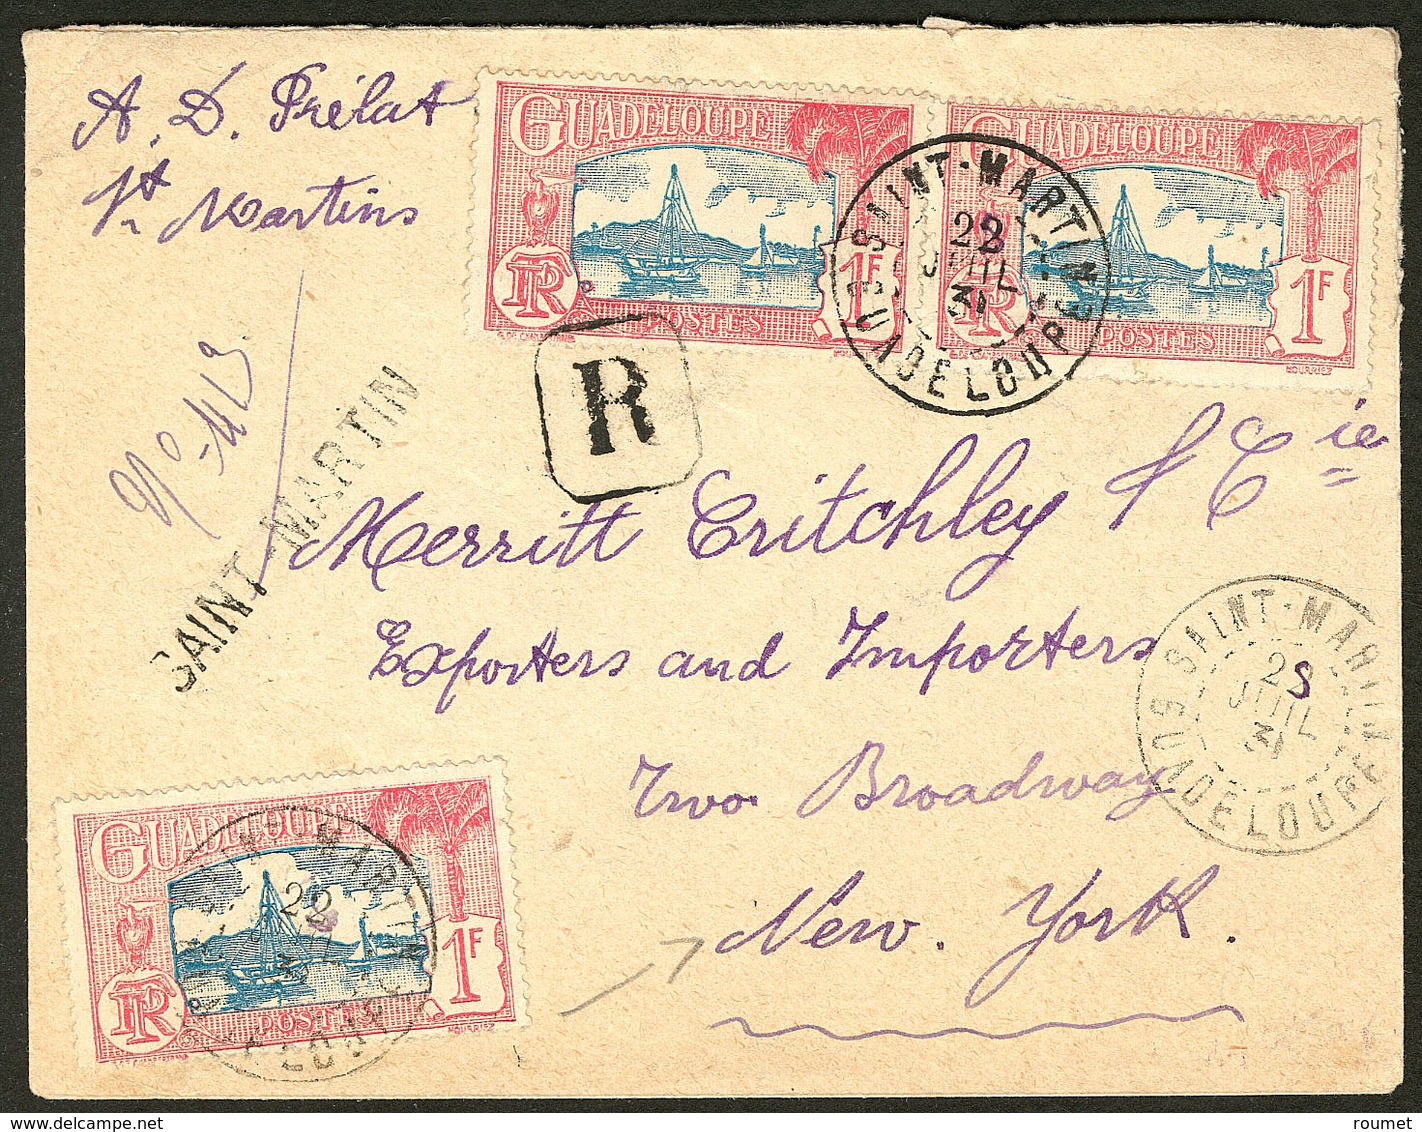 A. D. Prélat
St Martins
GUADELOUPE
RF
1F
POSTES
GUADELOUPE
1F
POSTES
HOURRIEZ
SAINT-MARTIN
22
JUIL
31
GUADELOUPE
R
N° 413
SAINT-MARTIN
Merritt Critchley & Cie
Exporters and Importers
Two Broadway
New. York.
SAINT-MARTIN
JUIL
31
GUADELOUPE
GUADELOUPE
RF
1F
POSTES
HOURRIEZ
22
roumet